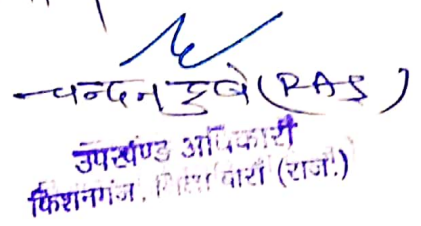 चन्दन दुबे (RAS)
उपखण्ड अधिकारी
किशनगंज, जिला बारां (राज.)